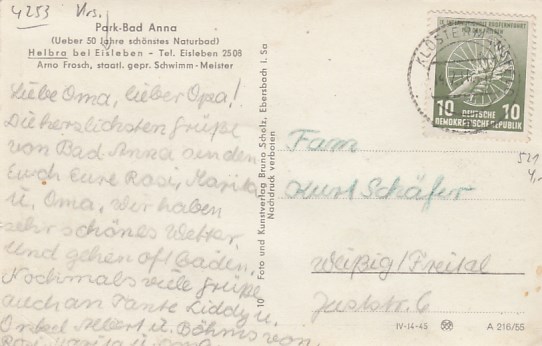 4253 Krs.
Park-Bad Anna
(Ueber 50 Jahre schönstes Naturbad)
Helbra bei Eisleben - Tel. Eisleben 2508
Arno Frosch, staatl. gepr. Schwimm-Meister
Liebe Oma, lieber Opa!
Die herzlichsten Grüße
von Bad Anna senden
Euch Eure Rosi, Marika
u. Oma. Wir haben
sehr schönes Wetter
und gehen oft baden.
Nochmals viele Grüße
auch an Tante Liddy u.
Onkel Albert u. Böhms von
Rosi, Marika u. Oma
10 Foto und Kunstverlag Bruno Scholz, Ebersbach i. Sa
Nachdruck verboten
KLOSTERMANSFELD
10 DEUTSCHE 10
DEMOKRATISCHE REPUBLIK
521
4,-
Fam
Kurt Schäfer
Weißig/Freital
Juststr. 6
IV-14-45 A 216/55